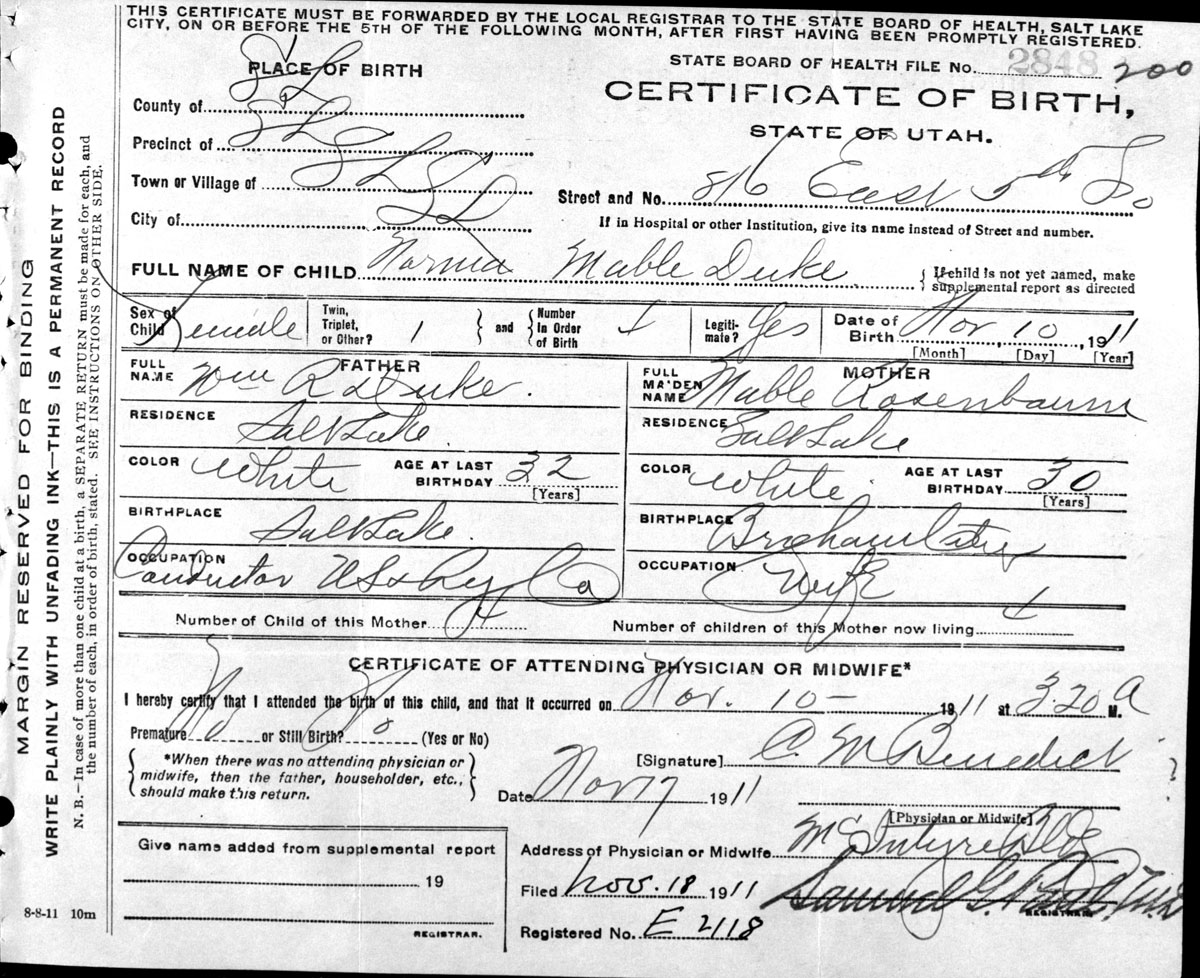 THIS CERTIFICATE MUST BE FORWARDED BY THE LOCAL REGISTRAR TO THE STATE BOARD OF HEALTH, SALT LAKE
CITY, ON OR BEFORE THE 5TH OF THE FOLLOWING MONTH, AFTER FIRST HAVING BEEN PROMPTLY REGISTERED.
STATE BOARD OF HEALTH FILE No. 2848 200
PLACE OF BIRTH
CERTIFICATE OF BIRTH,
STATE OF UTAH.
County of S L
Precinct of S L
Town or Village of S L
Street and No. 816 East 5th So
City of S L
If in Hospital or other Institution, give its name instead of Street and number.
FULL NAME OF CHILD Norma Mable Duke { If child is not yet named, make supplemental report as directed
Sex of Child Female Twin, Triplet, or Other? 1 } and { Number In Order of Birth 4 Legiti-mate? Yes Date of Birth Nov, 10, 1911
[Month] [Day] [Year]
FATHER
FULL NAME Wm R Duke.
MOTHER
FULL MAIDEN NAME Mable Rosenbaum
RESIDENCE Salt Lake.
RESIDENCE Salt Lake
COLOR White AGE AT LAST BIRTHDAY 32 [Years]
COLOR White, AGE AT LAST BIRTHDAY 30 [Years]
BIRTHPLACE Salt Lake.
BIRTHPLACE Brigham City
OCCUPATION Conductor Ry Co
OCCUPATION Wife
Number of Child of this Mother 4
Number of children of this Mother now living 4
CERTIFICATE OF ATTENDING PHYSICIAN OR MIDWIFE*
I hereby certify that I attended the birth of this child, and that it occurred on Nov. 10 - 1911 at 3.20 A M.
Premature No or Still Birth? No (Yes or No)
{ *When there was no attending physician or midwife, then the father, householder, etc., should make this return. }
[Signature] C. M Benedict ?
Date Nov 17 1911
[Physician or Midwife]
Address of Physician or Midwife McIntyre Bldg
Give name added from supplemental report
19
REGISTRAR.
Filed Nov. 18 1911 Samuel G.
REGISTRAR.
Registered No. E 2118
8-8-11 10m
MARGIN RESERVED FOR BINDING
WRITE PLAINLY WITH UNFADING INK—THIS IS A PERMANENT RECORD
N. B.—In case of more than one child at a birth, a SEPARATE RETURN must be made for each, and
the number of each, in order of birth, stated. SEE INSTRUCTIONS ON OTHER SIDE.